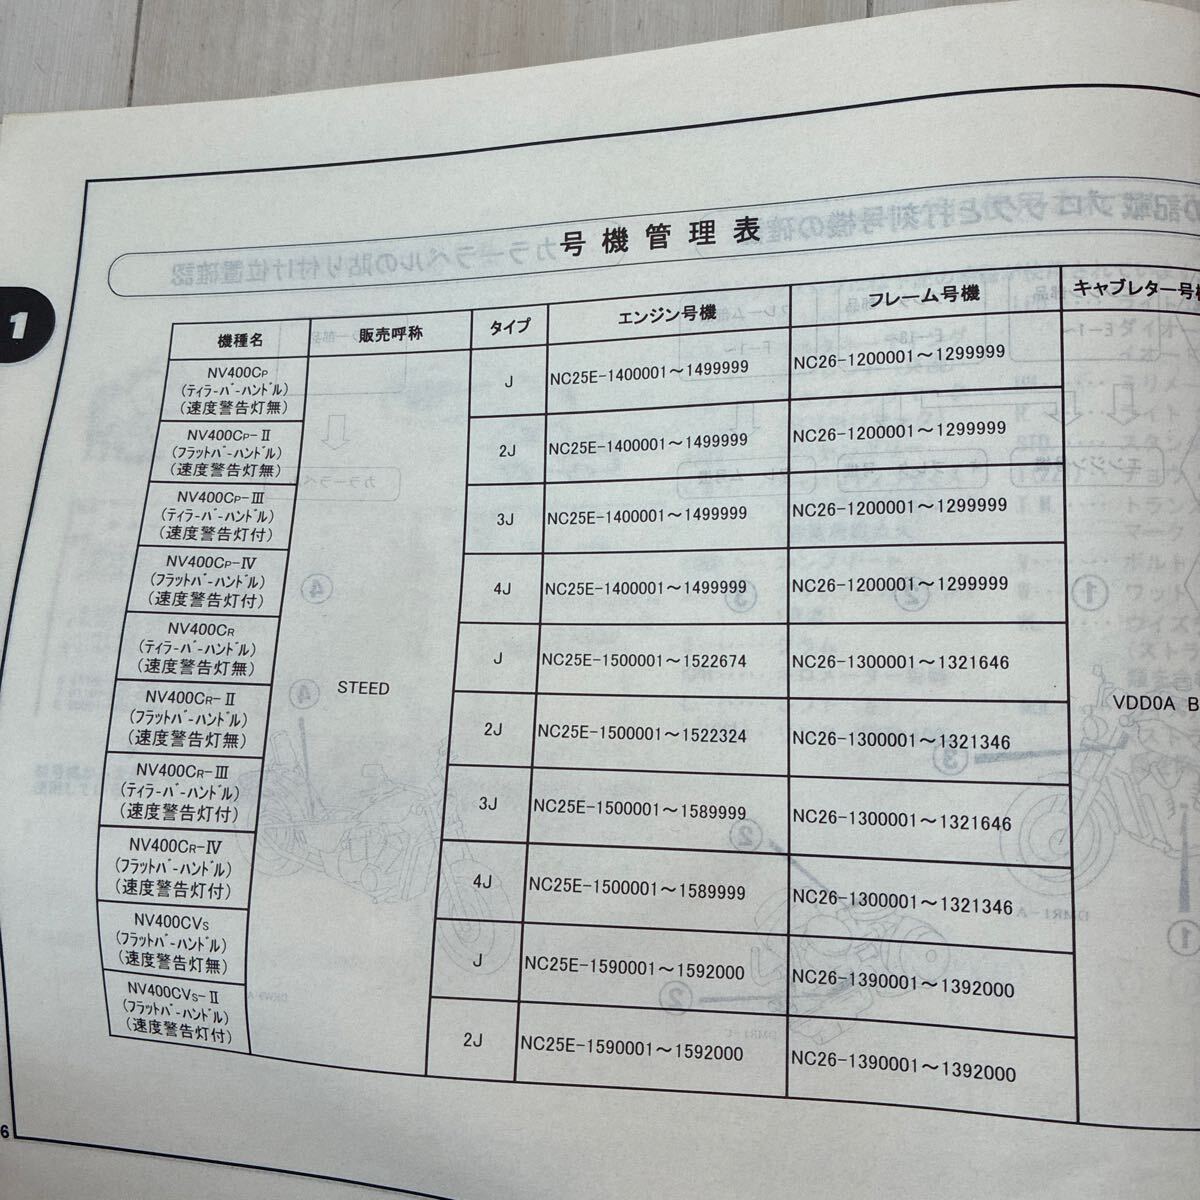 号機管理表
1
機種名 販売呼称 タイプ エンジン号機 フレーム号機 キャブレター号機
NV400CP
(ティラーバーハンドル)
(速度警告灯無)
J NC25E-1400001～1499999 NC26-1200001～1299999
NV400CP-Ⅱ
(フラットバーハンドル)
(速度警告灯無)
2J NC25E-1400001～1499999 NC26-1200001～1299999
NV400CP-Ⅲ
(ティラーバーハンドル)
(速度警告灯付)
3J NC25E-1400001～1499999 NC26-1200001～1299999
NV400CP-Ⅳ
(フラットバーハンドル)
(速度警告灯付)
4J NC25E-1400001～1499999 NC26-1200001～1299999
NV400CR
(ティラーバーハンドル)
(速度警告灯無)
J NC25E-1500001～1522674 NC26-1300001～1321646
STEED
VDD0A B
NV400CR-Ⅱ
(フラットバーハンドル)
(速度警告灯無)
2J NC25E-1500001～1522324 NC26-1300001～1321346
NV400CR-Ⅲ
(ティラーバーハンドル)
(速度警告灯付)
3J NC25E-1500001～1589999 NC26-1300001～1321646
NV400CR-Ⅳ
(フラットバーハンドル)
(速度警告灯付)
4J NC25E-1500001～1589999 NC26-1300001～1321346
NV400CVS
(フラットバーハンドル)
(速度警告灯無)
J NC25E-1590001～1592000 NC26-1390001～1392000
NV400CVS-Ⅱ
(フラットバーハンドル)
(速度警告灯付)
2J NC25E-1590001～1592000 NC26-1390001～1392000
6